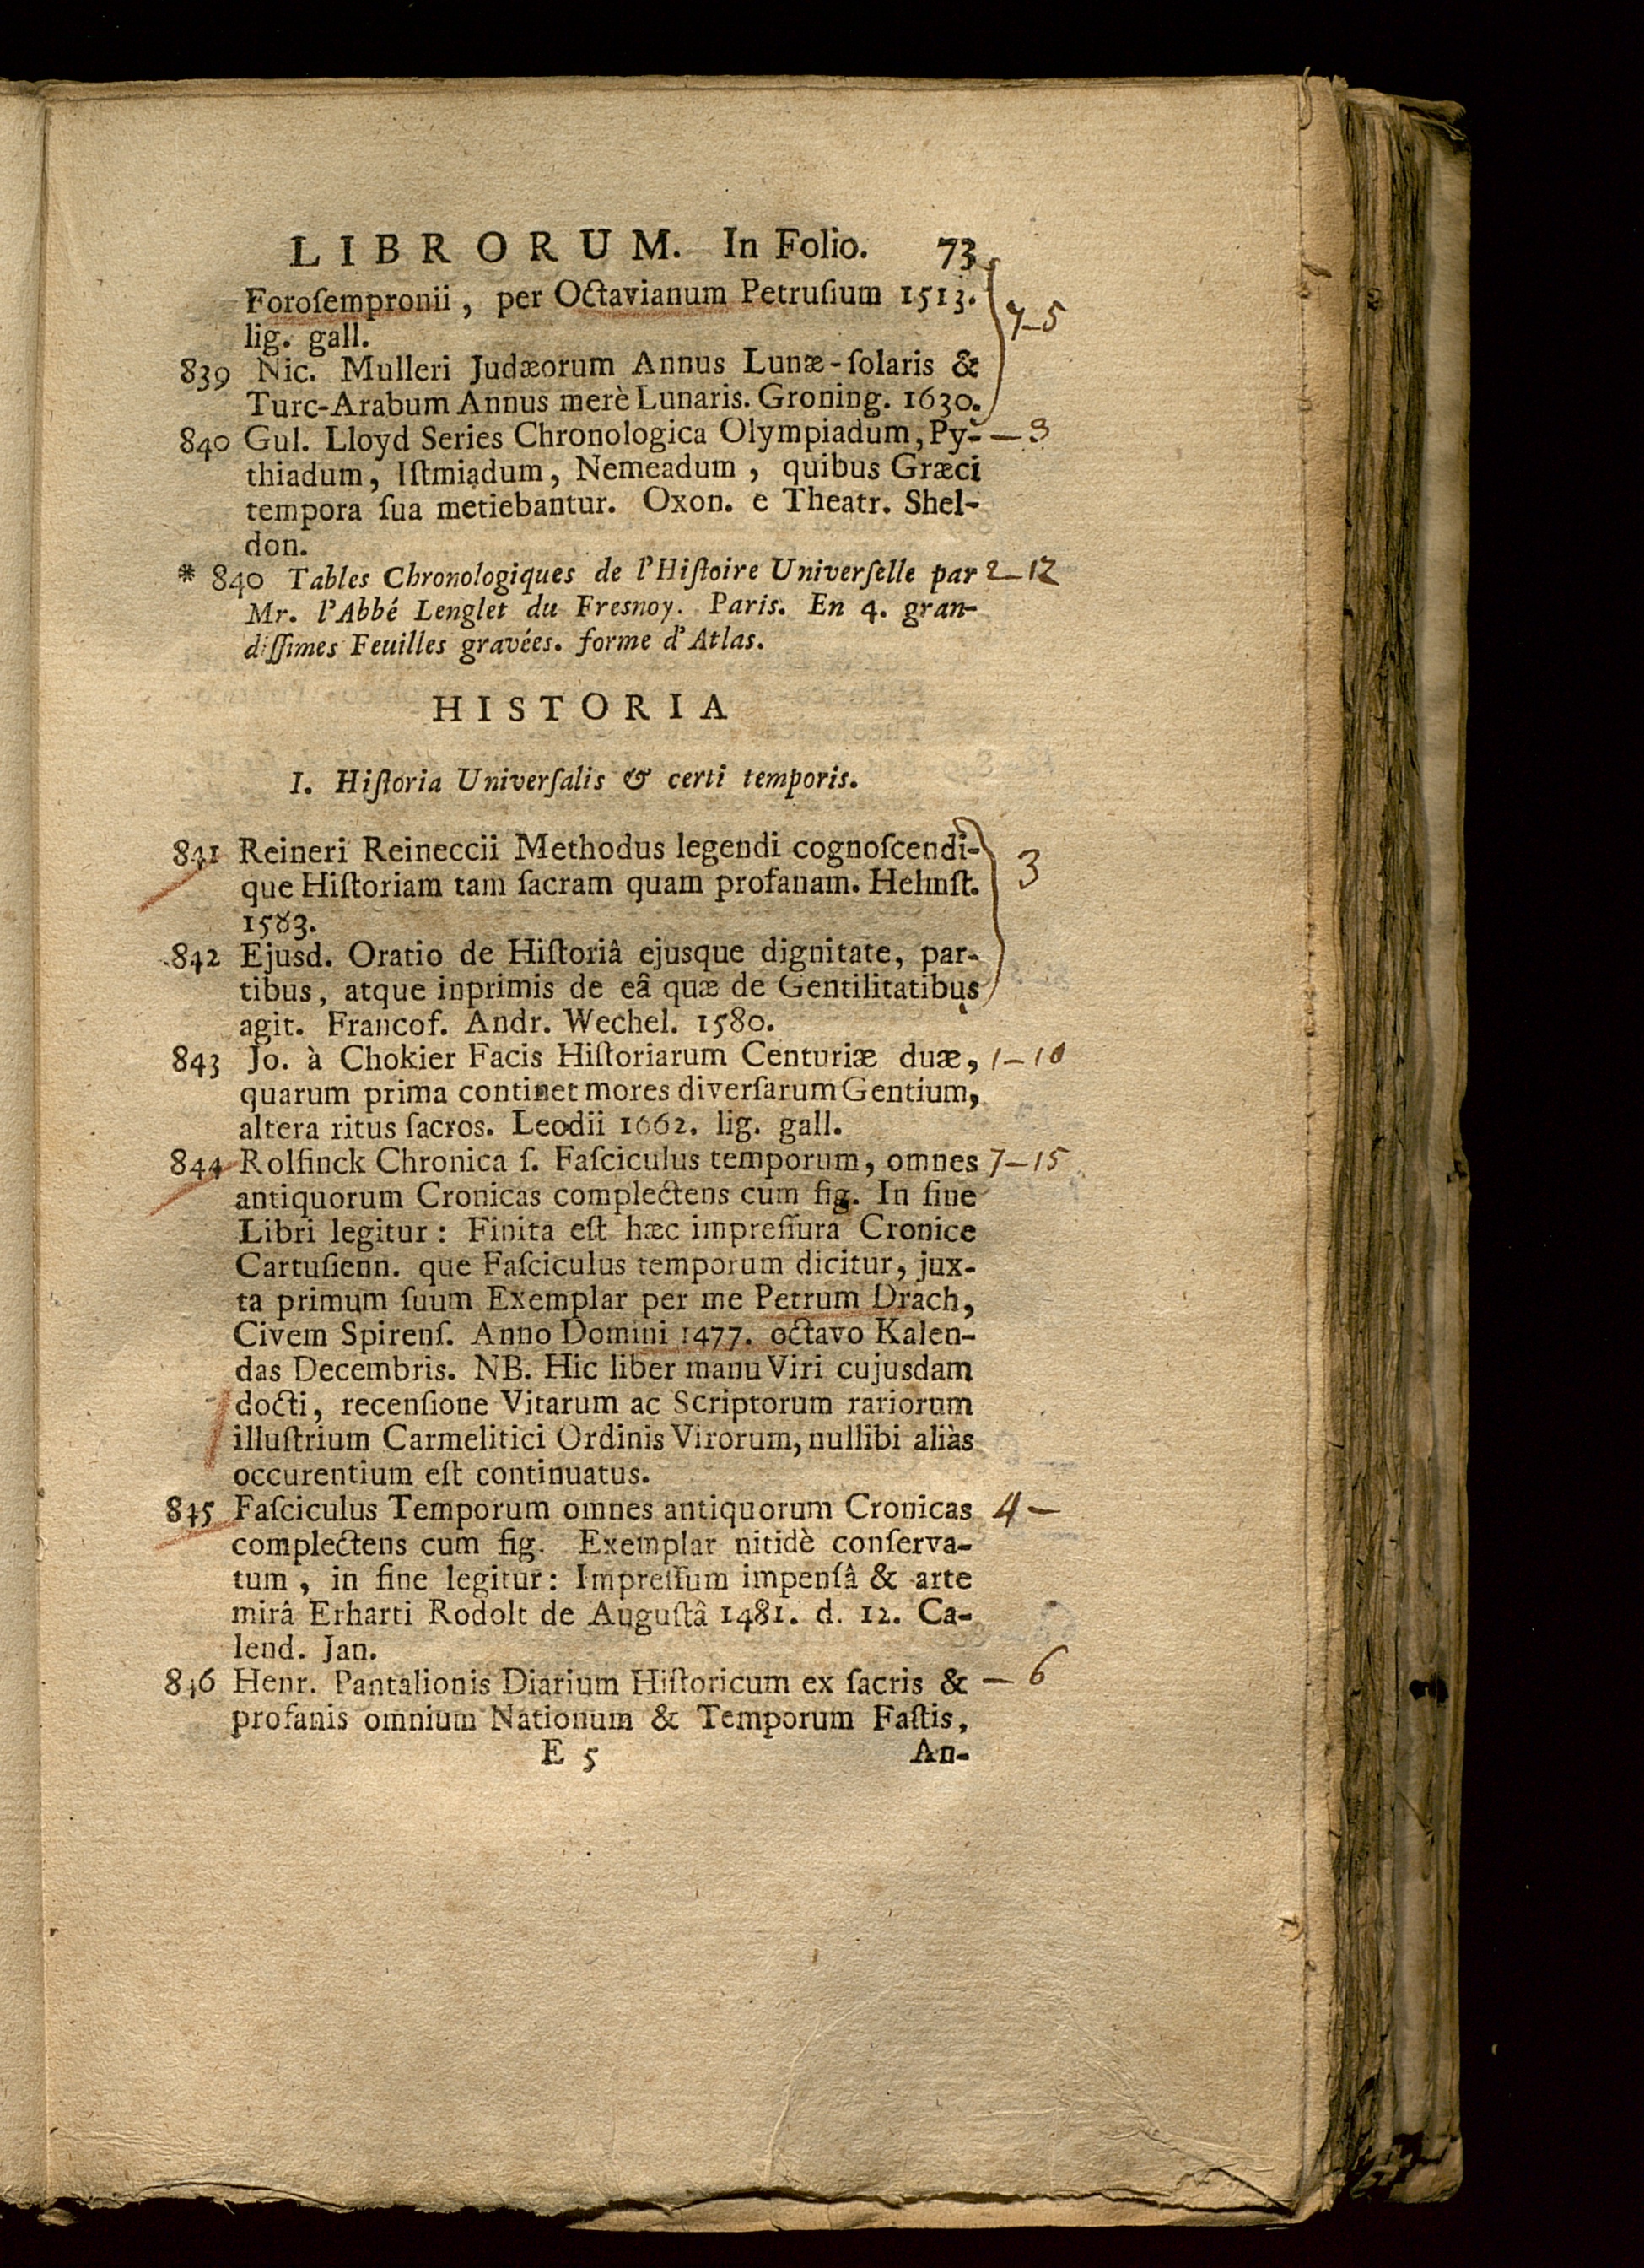 LIBRORUM. In Folio. 73
Foroſempronii, per Octavianum Petruſium 1513.
lig. gall.
7-5
839 Nic. Mulleri Judæorum Annus Lunæ-ſolaris &
Turc-Arabum Annus merè Lunaris. Groning. 1630.
840 Gul. Lloyd Series Chronologica Olympiadum, Py- — 3
thiadum, Iſtmiadum, Nemeadum, quibus Græci
tempora ſua metiebantur. Oxon. e Theatr. Shel-
don.
* 840 Tables Chronologiques de l'Hiſtoire Univerſelle par 2-12
Mr. l'Abbé Lenglet du Freſnoy. Paris. En 4. gran-
diſſimes Feuilles gravées. forme d'Atlas.
HISTORIA
I. Hiſtoria Univerſalis & certi temporis.
841 Reineri Reineccii Methodus legendi cognoſcendi-
que Hiſtoriam tam ſacram quam profanam. Helmſt. 3
1583.
842 Ejusd. Oratio de Hiſtoriâ ejusque dignitate, par-
tibus, atque inprimis de eâ quæ de Gentilitatibus
agit. Francof. Andr. Wechel. 1580.
843 Jo. à Chokier Facis Hiſtoriarum Centuriæ duæ, 1-10
quarum prima continet mores diverſarum Gentium,
altera ritus ſacros. Leodii 1662. lig. gall.
844 Rolfinck Chronica ſ. Faſciculus temporum, omnes 7-15
antiquorum Cronicas complectens cum fig. In fine
Libri legitur: Finita eſt hæc impreſſura Cronice
Cartuſienn. que Faſciculus temporum dicitur, jux-
ta primum ſuum Exemplar per me Petrum Drach,
Civem Spirenſ. Anno Domini 1477. octavo Kalen-
das Decembris. NB. Hic liber manu Viri cujusdam
docti, recenſione Vitarum ac Scriptorum rariorum
illuſtrium Carmelitici Ordinis Virorum, nullibi aliàs
occurentium eſt continuatus.
845 Faſciculus Temporum omnes antiquorum Cronicas 4 —
complectens cum fig. Exemplar nitidè conſerva-
tum, in fine legitur: Impreſſum impenſâ & arte
mirâ Erharti Rodolt de Auguſtâ 1481. d. 12. Ca-
lend. Jan.
846 Henr. Pantalionis Diarium Hiſtoricum ex ſacris & — 6
profanis omnium Nationum & Temporum Faſtis,
E 5 An-